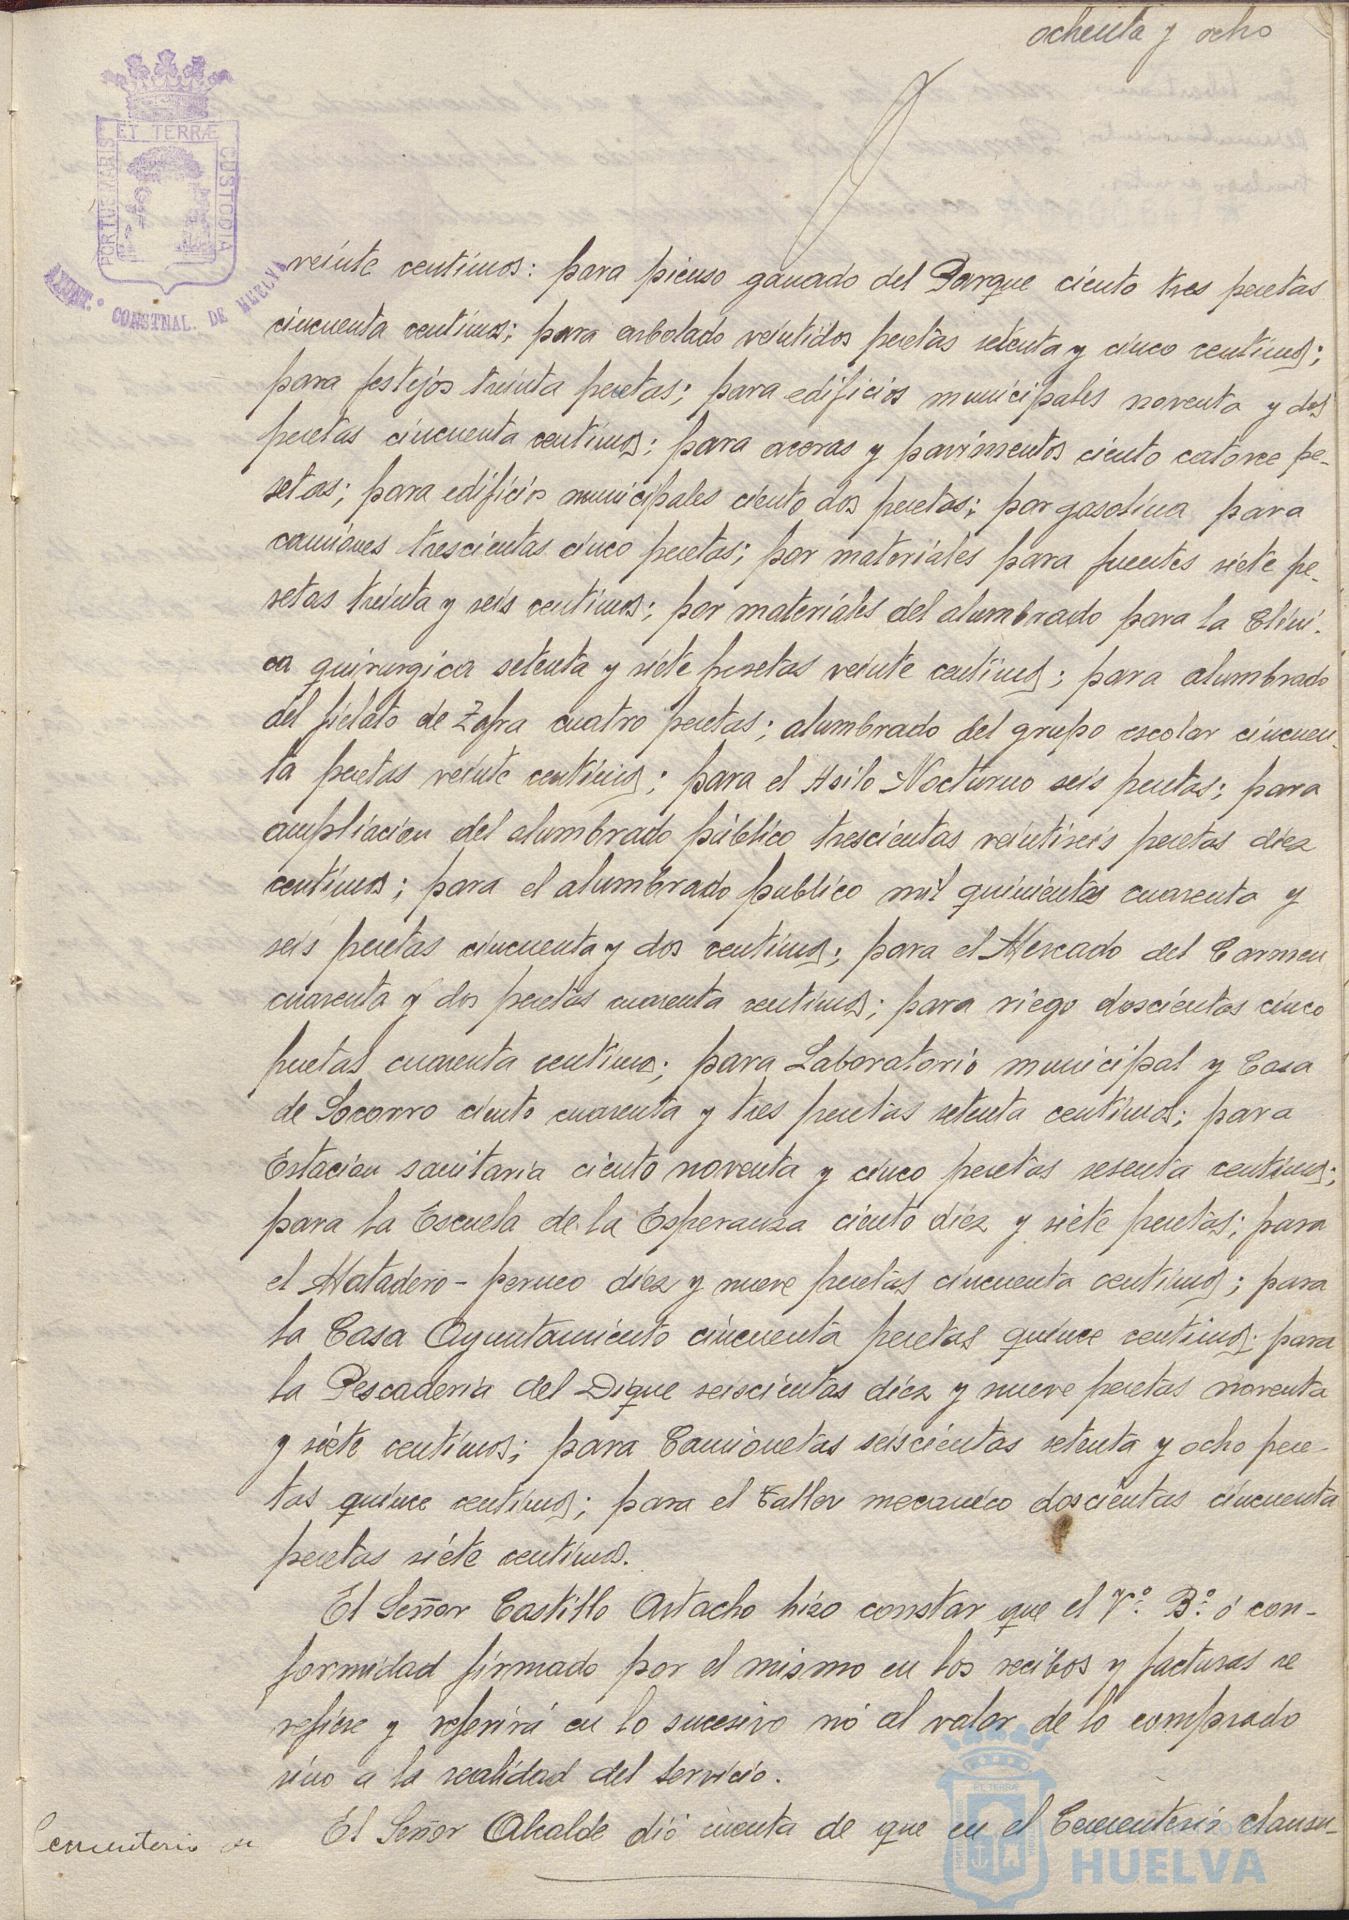 ochenta y ocho
PORTUS MARIS ET TERRÆ CUSTODIA
AYUNT. CONSTNAL. DE HUELVA
veinte centimos: para pienso ganado del Parque ciento tres pesetas
cincuenta centimos; para arbolado veintidos pesetas setenta y cinco centimos;
para festejos treinta pesetas; para edificios municipales noventa y dos
pesetas cincuenta centimos; para aceras y pavimentos ciento catorce pe-
setas; para edificios municipales ciento dos pesetas; por gasolina para
camiones trescientas cinco pesetas; por materiales para fuentes siete pe-
setas treinta y seis centimos; por materiales del alumbrado para la Clini-
ca quirurgica setenta y siete pesetas veinte centimos; para alumbrado
del fielato de Zafra cuatro pesetas; alumbrado del grupo escolar cincuen-
ta pesetas veinte centimos; para el Asilo Nocturno seis pesetas; para
ampliacion del alumbrado público trescientas veintiseis pesetas diez
centimos; para el alumbrado publico mil quinientas cuarenta y
seis pesetas cincuenta y dos centimos; para el Mercado del Carmen
cuarenta y dos pesetas cuarenta centimos; para riego doscientas cinco
pesetas cuarenta centimos; para Laboratorio municipal y Casa
de Socorro ciento cuarenta y tres pesetas setenta centimos; para
Estacion sanitaria ciento noventa y cinco pesetas sesenta centimos;
para la Escuela de la Esperanza ciento diez y siete pesetas; para
el Matadero- peruco diez y nueve pesetas cincuenta centimos; para
la Casa Ayuntamiento cincuenta pesetas quince centimos; para
la Pescaderia del Dique seiscientas diez y nueve pesetas noventa
y siete centimos; para Camionetas seiscientas setenta y ocho pese-
tas quince centimos; para el Taller mecanico doscientas cincuenta
pesetas siete centimos.
El Señor Castillo Artacho hizo constar que el Vº. Bº. ó con-
formidad firmado por el mismo en los recibos y facturas se
refiere y referirá en lo sucesivo nó al valor de lo comprado
sino a la realidad del servicio.
Cementerio de
El Señor Alcalde dió cuenta de que en el Cementerio clausu-
HUELVA